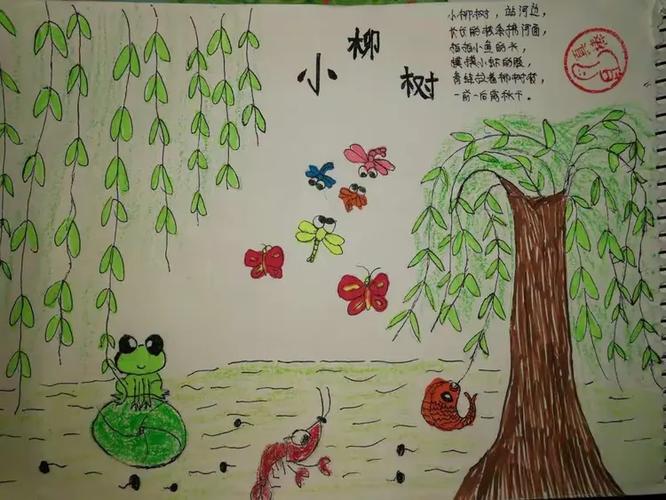 小柳树
小柳树，站河边，
长长的枝条拂河面，
拍拍小鱼的头，
摸摸小虾的腰，
青蛙拉着柳树枝，
一前一后荡秋千。